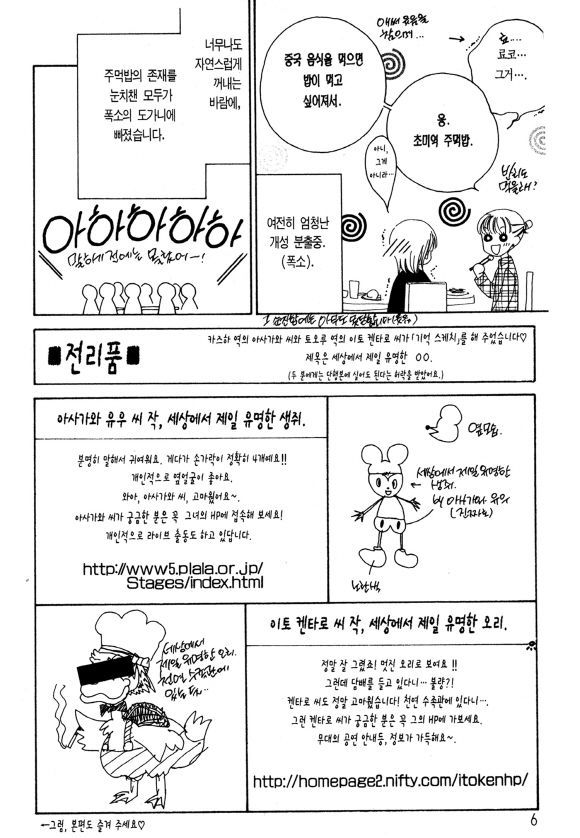 애써 웃음을
참으며…
료코…
그거….
중국 음식을 먹으면
밥이 먹고
싶어져서.
응.
초미역 주먹밥.
아니,
그게
아니라…
여전히 엄청난
개성 분출중.
(폭소).
너무나도
자연스럽게
꺼내는
바람에,
주먹밥의 존재를
눈치챈 모두가
폭소의 도가니에
빠졌습니다.
아하하하하
■전리품■
카즈하 역의 아사가와 씨와 토오루 역의 이토 켄타로 씨가 「기억 스케치」를 해 주었습니다♡
제목은 세상에서 제일 유명한 OO.
(두 분에게는 단행본에 실어도 된다는 허락을 받았어요.)
아사가와 유우 씨 작, 세상에서 제일 유명한 생쥐.
분명히 말해서 귀여워요. 게다가 손가락이 정확히 4개예요!!
개인적으로 옆얼굴이 좋아요.
와아, 아사가와 씨, 고마웠어요~.
아사가와 씨가 궁금한 분은 꼭 그녀의 HP에 접속해 보세요!
개인적으로 라이브 출동도 하고 있답니다.
http://www5.plala.or.jp/
Stages/index.html
옆모습.
←세상에서 제일 유명한
생쥐.
by 아사가와 유우
노란색
세상에서
제일 유명한 오리.
이토 켄타로 씨 작, 세상에서 제일 유명한 오리.
정말 잘 그렸죠! 멋진 오리로 보여요!!
그런데 담배를 들고 있다니… 불량?!
켄타로 씨도 정말 고마웠습니다! 천연 수족관에 있다니….
그런 켄타로 씨가 궁금한 분은 꼭 그의 HP에 가보세요.
무대의 공연 안내등, 정보가 가득해요~.
http://homepage2.nifty.com/itokenhp/
←그럼, 본편도 즐겨 주세요♡
6